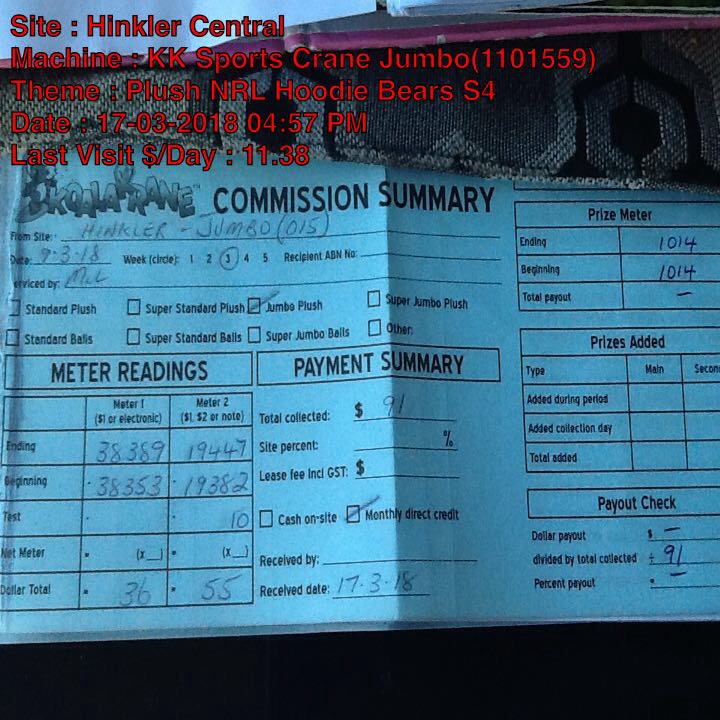 Site : Hinkler Central
Machine : KK Sports Crane Jumbo(1101559)
Theme : Plush NRL Hoodie Bears S4
Date : 17-03-2018 04:57 PM
Last Visit $/Day : 11.38
KOALA KRANE™ COMMISSION SUMMARY
From Site: HINKLER - JUMBO (015)
Date: 9-3-18 Week (circle): 1 2 3 4 5 Recipient ABN No:
erviced by:
Standard Plush Super Standard Plush Jumbo Plush Super Jumbo Plush
Standard Balls Super Standard Balls Super Jumbo Balls Other:
METER READINGS
Meter 1 Meter 2
($1 or electronic) ($1, $2 or note)
Ending 38389 19447
Beginning 38353 19382
Test 10
Net Meter = (x__) = (x__)
Dollar Total = 36 = 55
PAYMENT SUMMARY
Total collected: $ 91
Site percent: %
Lease fee Incl GST: $
Cash on-site Monthly direct credit
Received by:
Received date: 17-3-18
Prize Meter
Ending 1014
Beginning 1014
Total payout –
Prizes Added
Type Main Secon
Added during period
Added collection day
Total added
Payout Check
Dollar payout $ –
divided by total collected ÷ 91
Percent payout = –